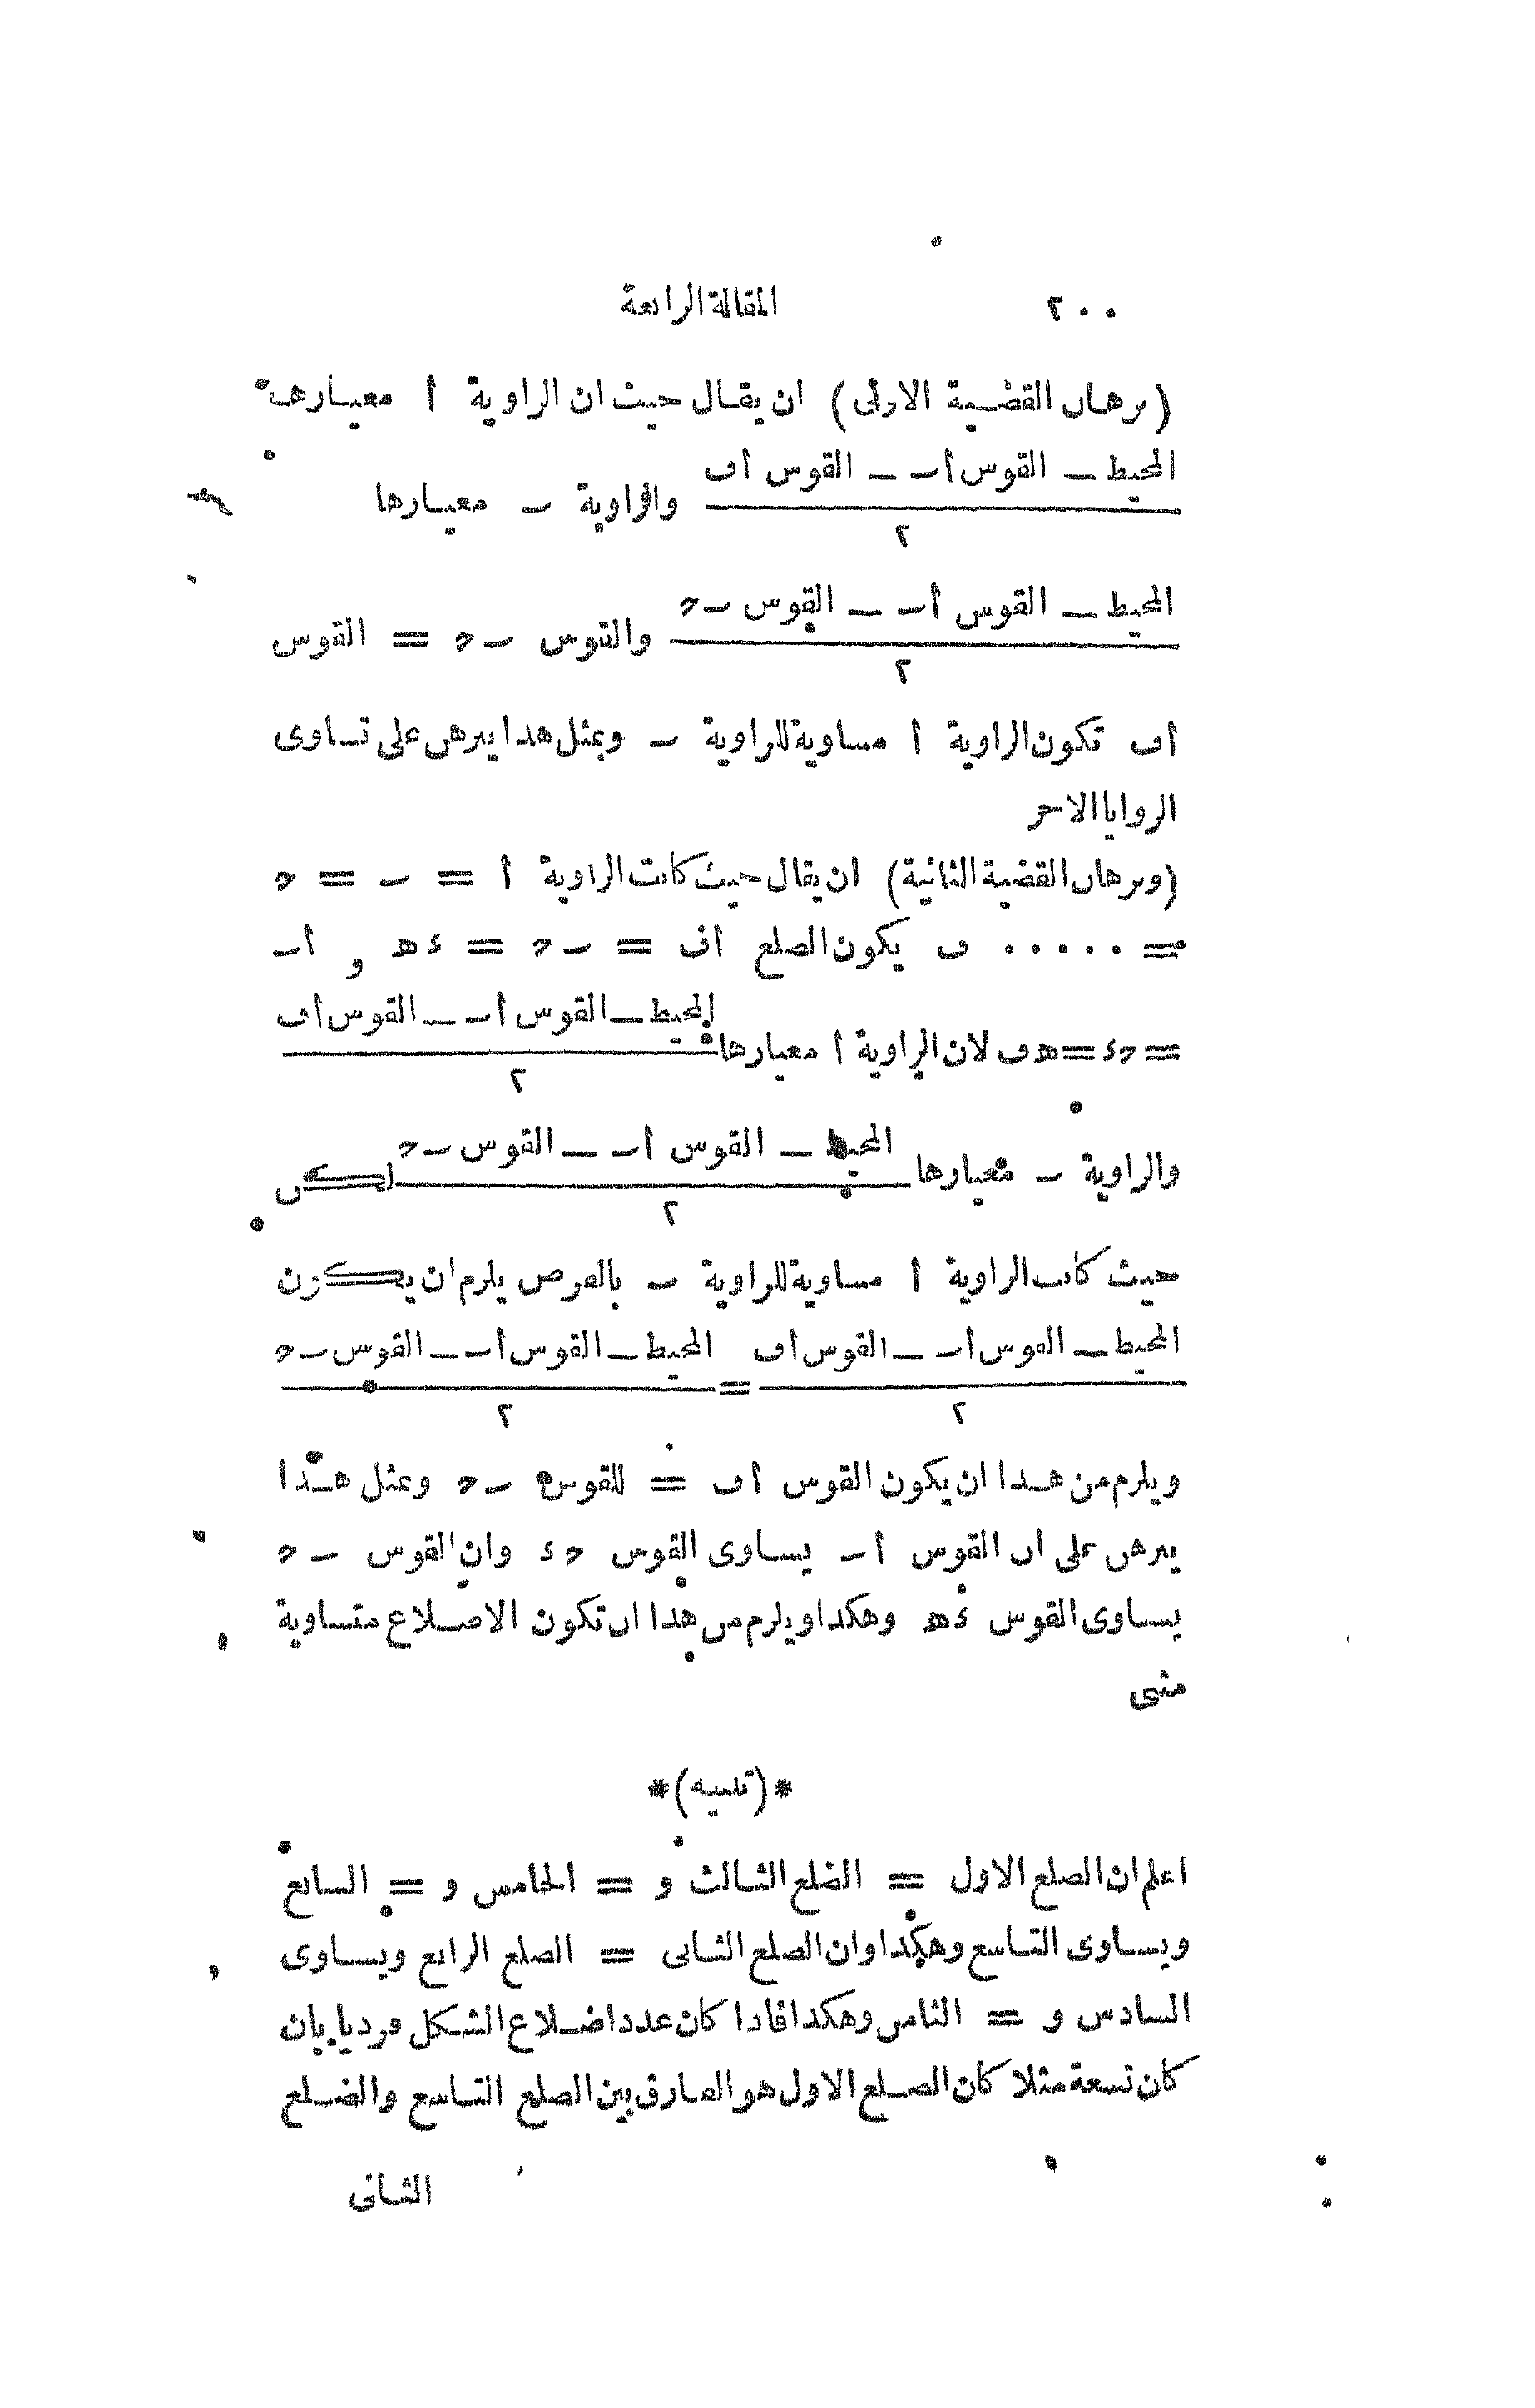 ٢٠٠ المقالة الرابعة
(برهان القضية الاولى) ان يقال حيث ان الزاوية أ معيارها
المحيط ـ القوس أب ـ القوس أف
والزاوية ب معيارها
٢
المحيط ـ القوس أب ـ القوس بح
والقوس بح = القوس
٢
أف تكون الزاوية أ مساوية للزاوية ب وبمثل هذا يبرهن على تساوى
الزوايا الاخر
(وبرهان القضية الثانية) ان يقال حيث كانت الزاوية أ = ب = ح
= ..... ف يكون الضلع أف = بح = ءه و أب
المحيط ـ القوس أب ـ القوس أف
= حء = هف لان الزاوية أ معيارها
٢
المحيط ـ القوس أب ـ القوس بح
والزاوية ب معيارها لكن
٢
حيث كانت الزاوية أ مساوية للزاوية ب بالفرض يلزم ان يكون
المحيط ـ القوس أب ـ القوس أف = المحيط ـ القوس أب ـ القوس بح
٢ ٢
ويلزم من هذا ان يكون القوس أف = للقوس بح وبمثل هذا
يبرهن على ان القوس أب يساوى القوس حء وان القوس بح
يساوى القوس ءه وهكذا ويلزم من هذا ان تكون الاضلاع متساوية
مثنى
*(تنبيه)*
اعلم ان الضلع الاول = الضلع الثالث و = الخامس و = السابع
ويساوى التاسع وهكذا وان الضلع الثانى = الضلع الرابع ويساوى
السادس و = الثامن وهكذا فاذا كان عدد اضلاع الشكل فرديا بان
كان تسعة مثلا كان الضلع الاول هو الفارق بين الضلع التاسع والضلع
الثانى